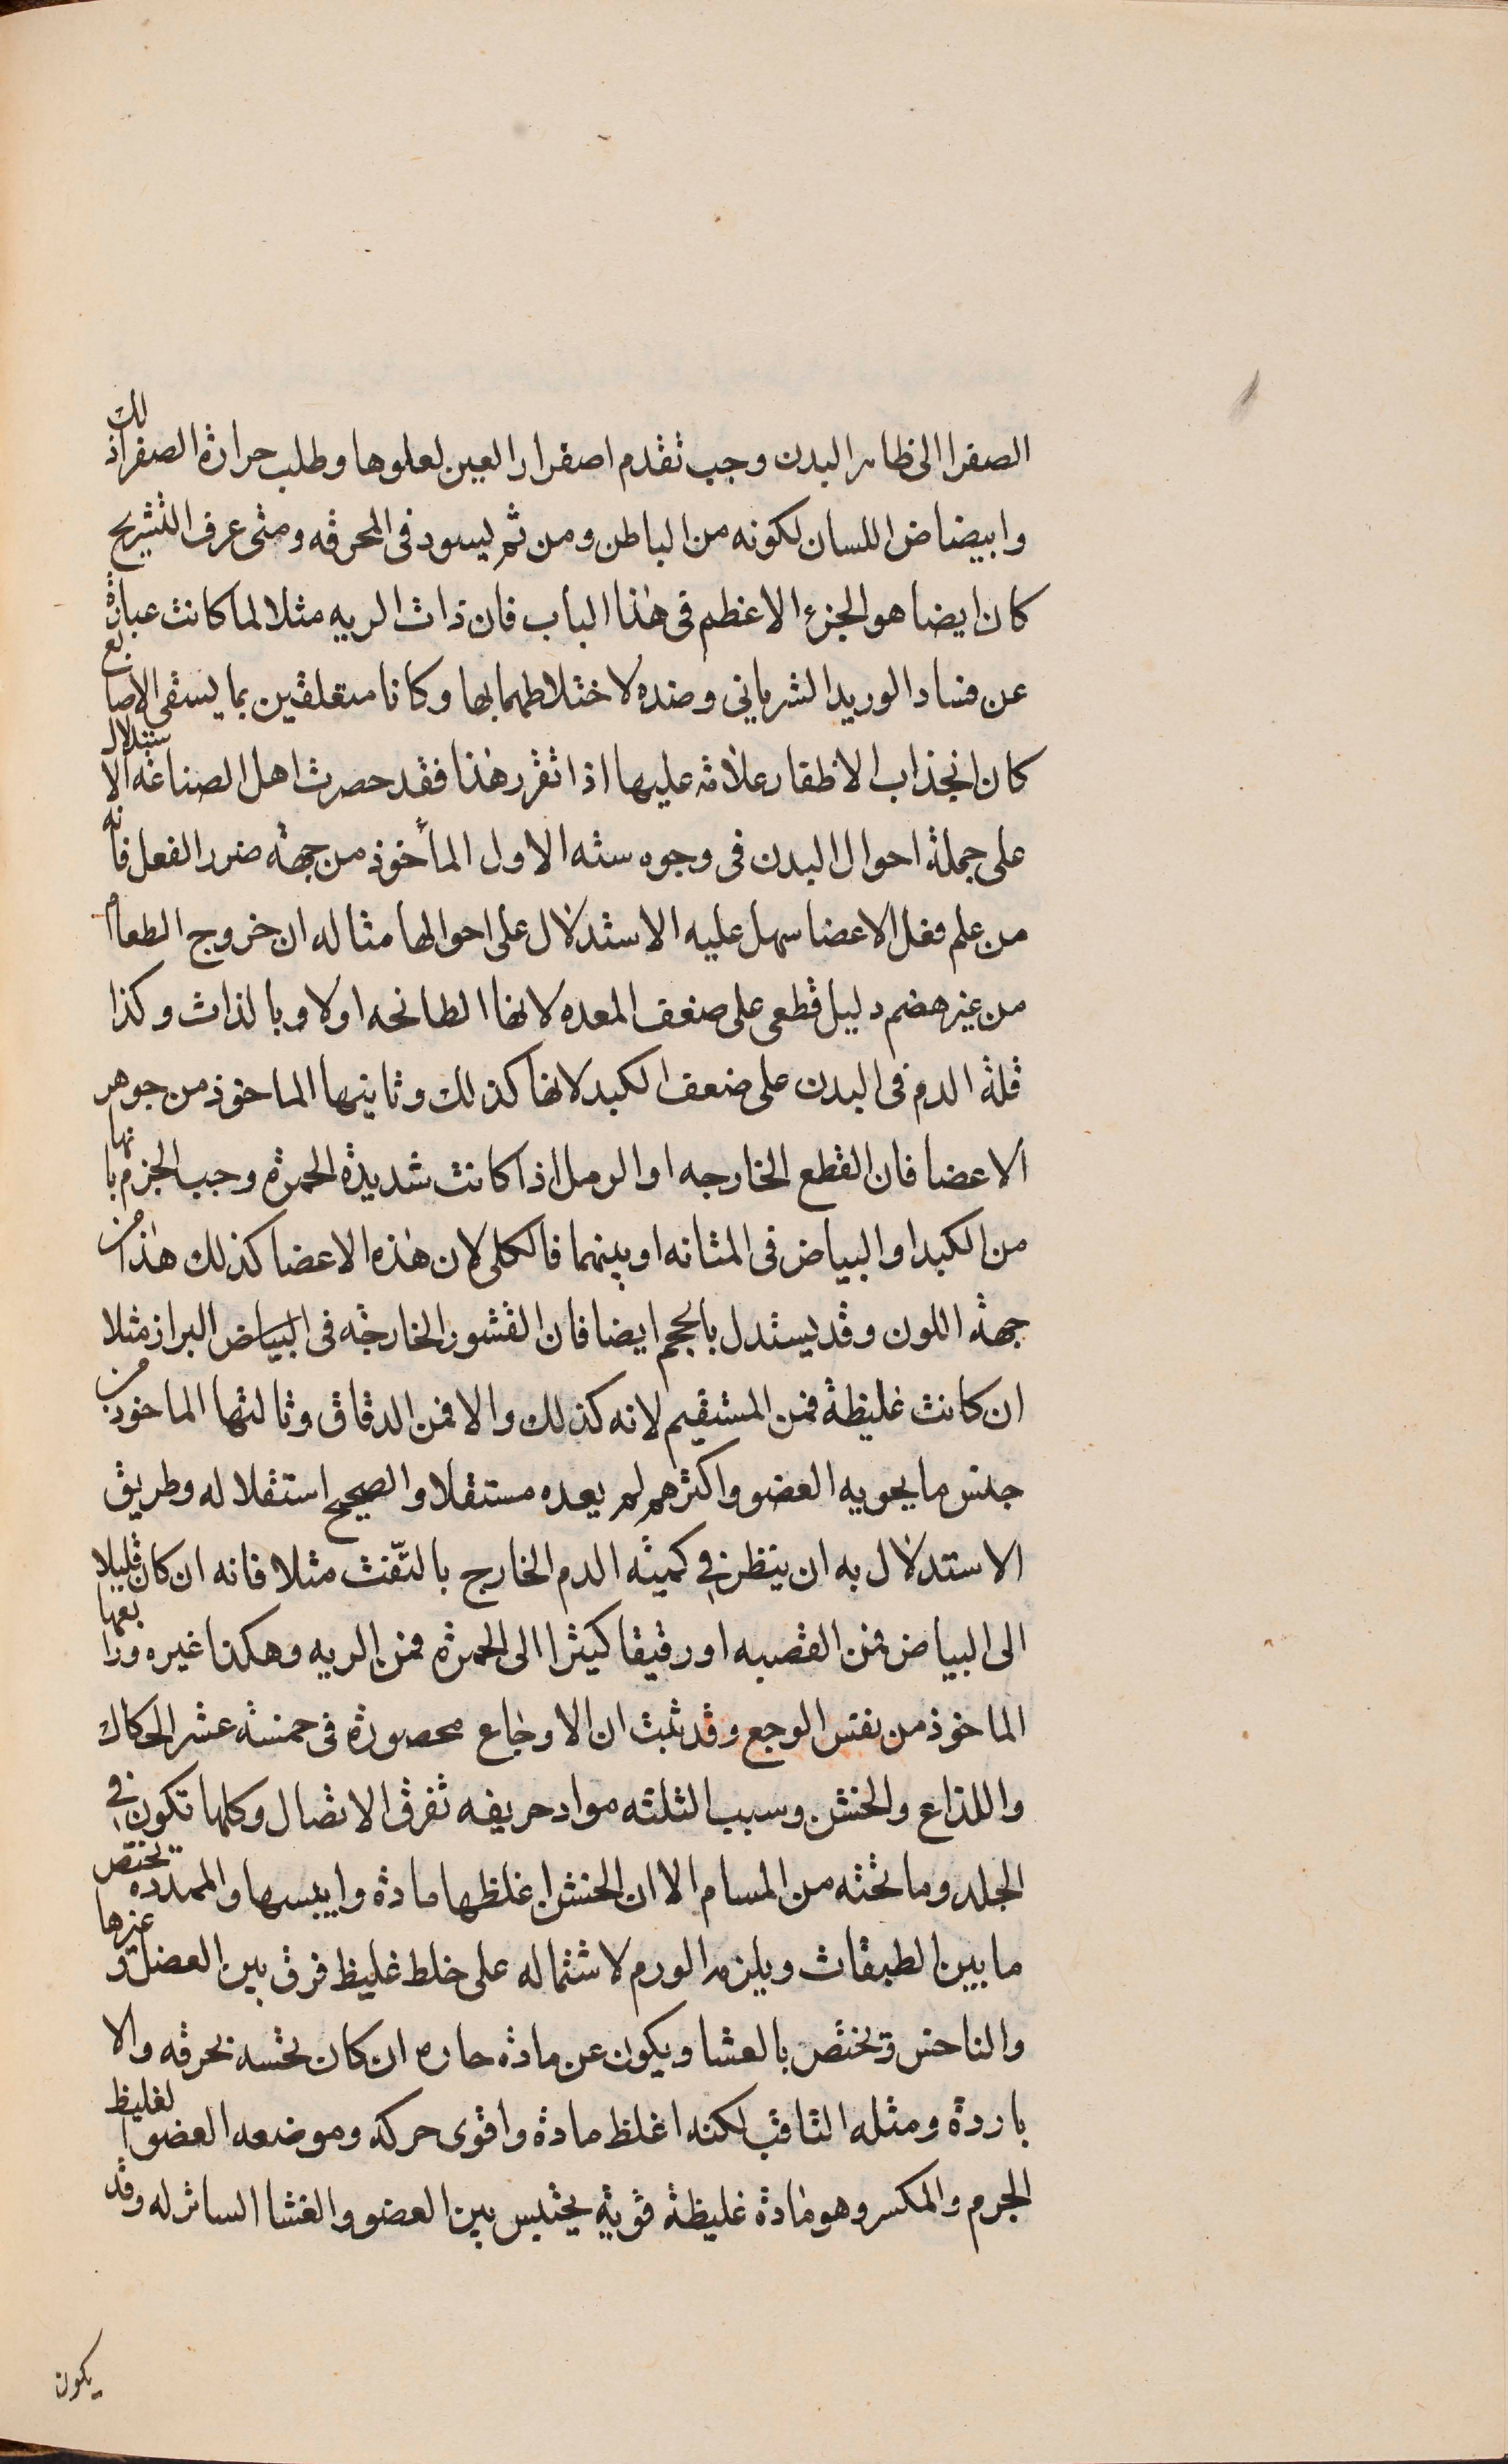 الصفرا الى ظاهر البدن وجب تقدم اصفرار العين لعلوها وطلب حرارة الصفرا ذلك
وابيضاض اللسان لكونه من الباطن ومن ثم يسود فى المحرقه ومتى عرف التشريح
كان ايضا هو الجزء الاعظم فى هذا الباب فان ذات الريه مثلا لما كانت عبارة
عن فساد الوريد الشرياني وضده لاختلاطهما بها وكانا متعلقين بما يسقى الاصابع
كان انجذاب الاظفار علامة عليها اذا تقرر هذا فقد حصرت اهل الصناعة الاستدلال
على جملة احوال البدن فى وجوه سته الاول المأخوذ من جهة ضرر الفعل فانه
من علم فعل الاعضا سهل عليه الاستدلال على احوالها مثاله ان خروج الطعام
من غير هضم دليل قطعى على ضعف المعده لانها الطابخه اولا وبالذات وكذا
قلة الدم فى البدن على ضعف الكبد لانها كذلك وثانيها الماخوذ من جوهر
الاعضا فان القطع الخارجه او الرمل اذا كانت شديدة الحمرة وجب الجزم بانها
من الكبد او البياض فى المثانه او بينهما فالكلى لان هذه الاعضا كذلك هذا من
جهة اللون وقد يستدل بالحجم ايضا فان القشور الخارجة فى البياض البراز مثلا
ان كانت غليظة فمن المستقيم لانه كذلك والا فمن الدقاق وثالثها الماخوذ من
جنس ما يحويه العضو واكثرهم لم يعده مستقلا والصحيح استقلاله وطريق
الاستدلال به ان ينظر في كمية الدم الخارج بالتفث مثلا فانه ان كان قليلا
الى البياض فمن القصبه او رقيقا كيثرا الى الحمرة فمن الريه وهكذا غيره ورابعها
الماخوذ من نفس الوجع وقد ثبت ان الاوجاع محصورة فى خمسة عشر الحكاك
واللذاع والخشن وسبب الثلثه مواد حريفه تفرق الاتصال وكلها تكون في
الجلد وما تحته من المسام الا ان الخشن اغلظها مادة وايبسها والممدد يختص
ما بين الطبقات ويلزمه الورم لاشتماله على خلط غليظ فرق بين العضل وغيرها
والناخس ويختص بالغشا ويكون عن مادة حاره ان كان نخسه بحرقه والا
باردة ومثله الثاقب لكنه اغلظ مادة واقوى حركة وموضعه العضو الغليظ
الجرم والمكسر وهو مادة غليظة قوية يحتبس بين العضو والغشا الساتر له وقد
يكون